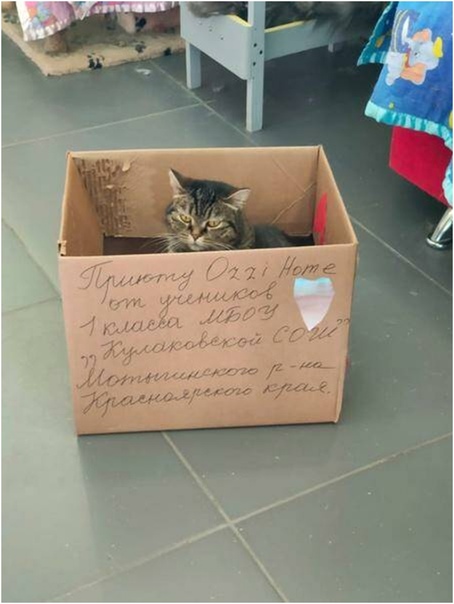 Приюту Ozzi Home
от учеников
1 класса МБОУ
„Кулаковской СОШ”
Мотыгинского р-на
Красноярского края.